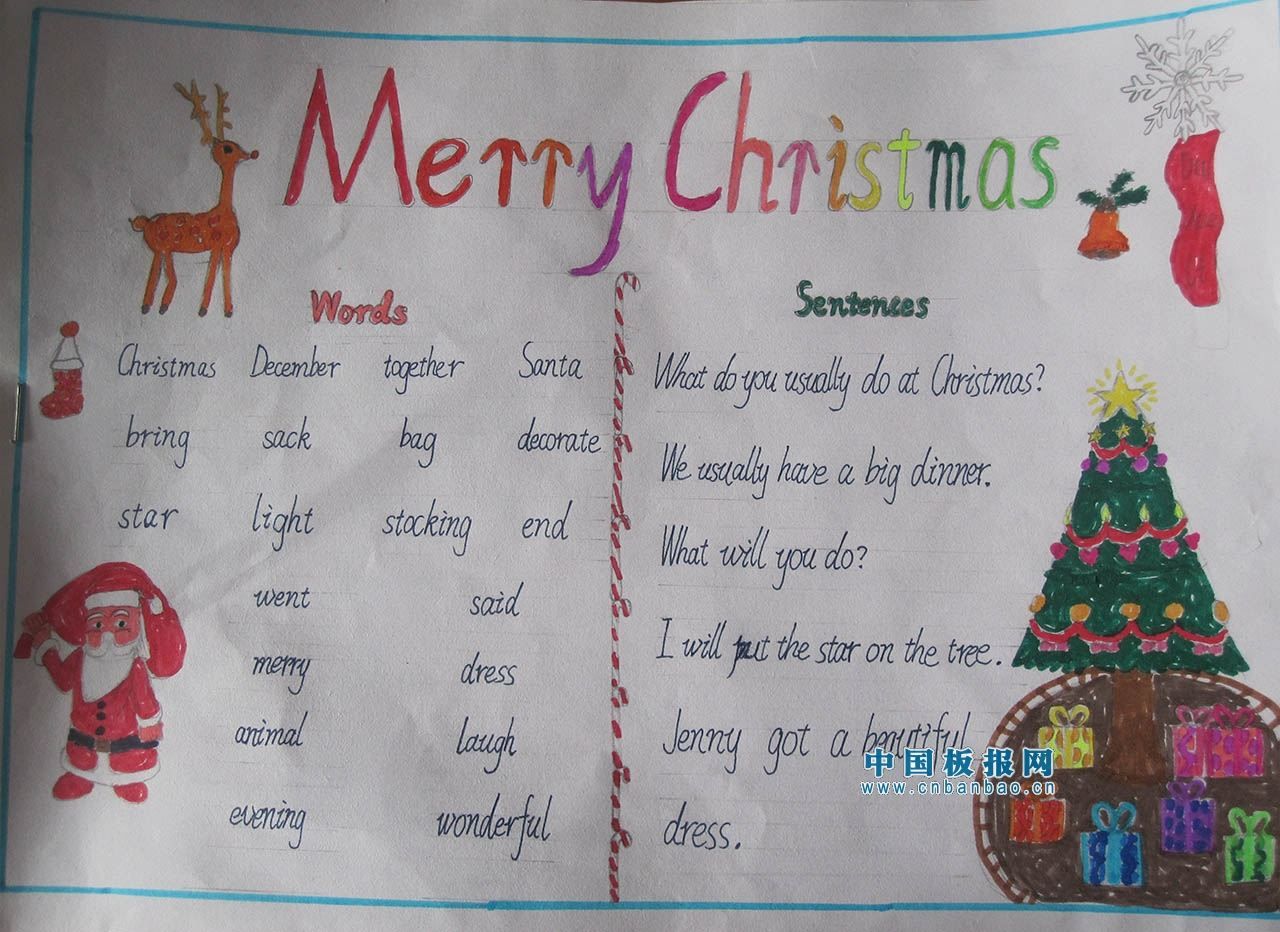 Merry Christmas
Words
Christmas December together Santa
bring sack bag decorate
star light stocking end
went said
merry dress
animal laugh
evening wonderful
Sentences
What do you usually do at Christmas?
We usually have a big dinner.
What will you do?
I will put the star on the tree.
Jenny got a beautiful
dress.
中国板报网
www.cnbanbao.cn